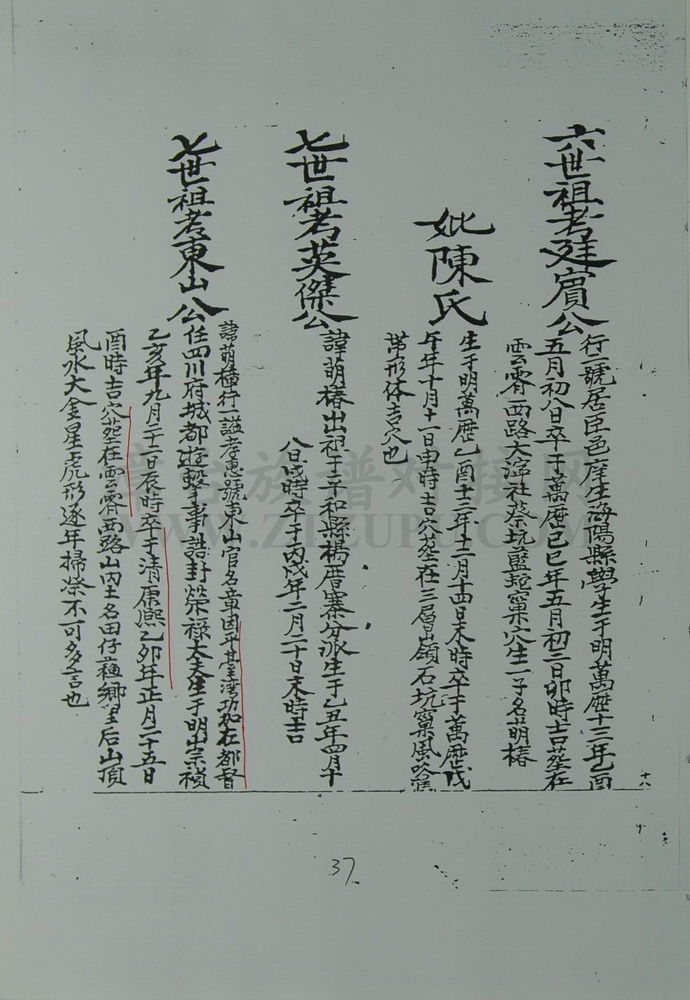 十八
六世祖考廷賓公
行二號居臣邑庠生海陽縣學生于明萬歷十三年乙酉
五月初八日卒于萬歷己巳年五月初二日卯時吉葬在
雲霄西路大浮社蔡坑藍蛇窠穴生一子名萌椿
妣陳氏
生于明萬歷乙酉十三年十二月十四日未時卒于萬歷戊
午年十月十一日申時吉穴葬在三層嶺石坑窠風吹
帶形体吉穴也
七世祖考英傑公
諱萌椿出祖于平和縣楊厝寨分派生于乙丑年四月十
八日戌時卒于丙戌年二月二十日未時吉
七世祖考東山公
諱萌種行一謚孝惠號東山官名章因平臺湾功加左都督
任四川府城都遊擊事誥封榮祿大夫生于明崇禎
乙亥年九月二十一日辰時卒于清康熙乙卯年正月二十五日
酉時吉穴葬在雲霄西路山內土名田仔蘓鄉里后山頂
風水大金星虎形逐年掃祭不可多言也
37
章台族谱对接网
WWW.ZTZUPU.COM